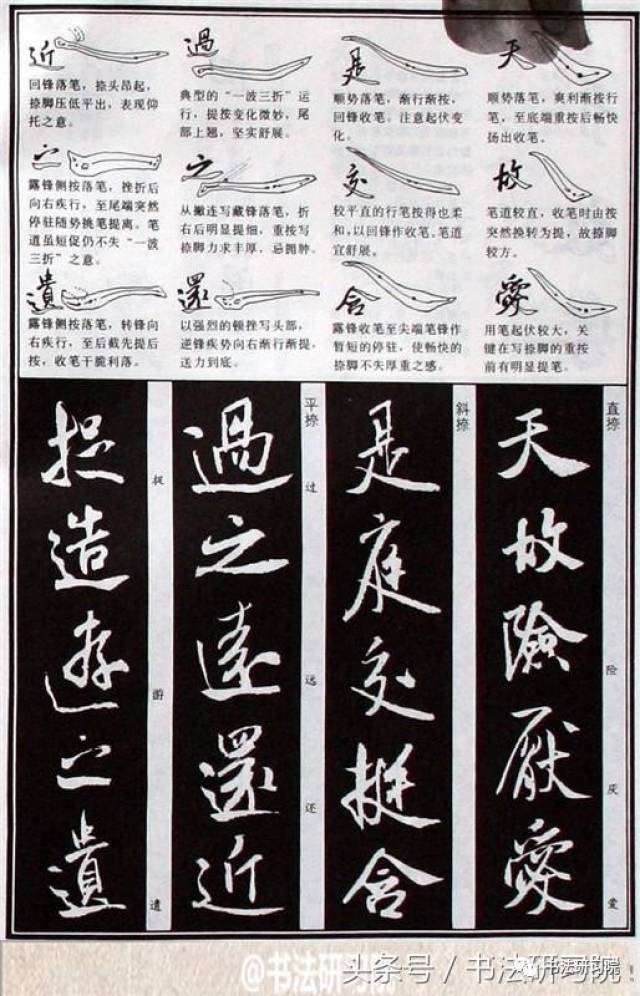 近
回锋落笔，捺头昂起，
捺脚压低平出，表现仰
托之意。
過
典型的“一波三折”运
行，提按变化微妙，尾
部上翘，坚实舒展。
是
顺势落笔，渐行渐按，
回锋收笔，注意起伏变
化。
天
顺势落笔，爽利渐按行
笔，至底端重按后畅快
扬出收笔。
之
露锋侧按落笔，挫折后
向右疾行，至尾端突然
停驻随势挑笔提离。笔
道虽短促仍不失“一波
三折”之意。
之
从撇连写藏锋落笔，折
右后明显提细，重按写
捺脚力求丰厚，忌拥肿。
交
较平直的行笔按得也柔
和，以回锋作收笔。笔道
宜舒展。
故
笔道较直，收笔时由按
突然换转为提，故捺脚
较方。
遺
露锋侧按落笔，转锋向
右疾行，至后截先提后
按，收笔干脆利落。
還
以强烈的顿挫写头部，
逆锋疾势向右渐行渐提，
送力到底。
含
露锋收笔至尖端笔锋作
暂短的停驻，使畅快的
捺脚不失厚重之感。
愛
用笔起伏较大，关
键在写捺脚的重按
前有明显提笔。
直捺
险
厌
爱
天故險厭愛
斜捺
是庭交挺含
平捺
过
远
还
過之遠還近
捉
游
遗
捉造遊之遺
@书法研习院
头条号／书法研习院
书法研究院